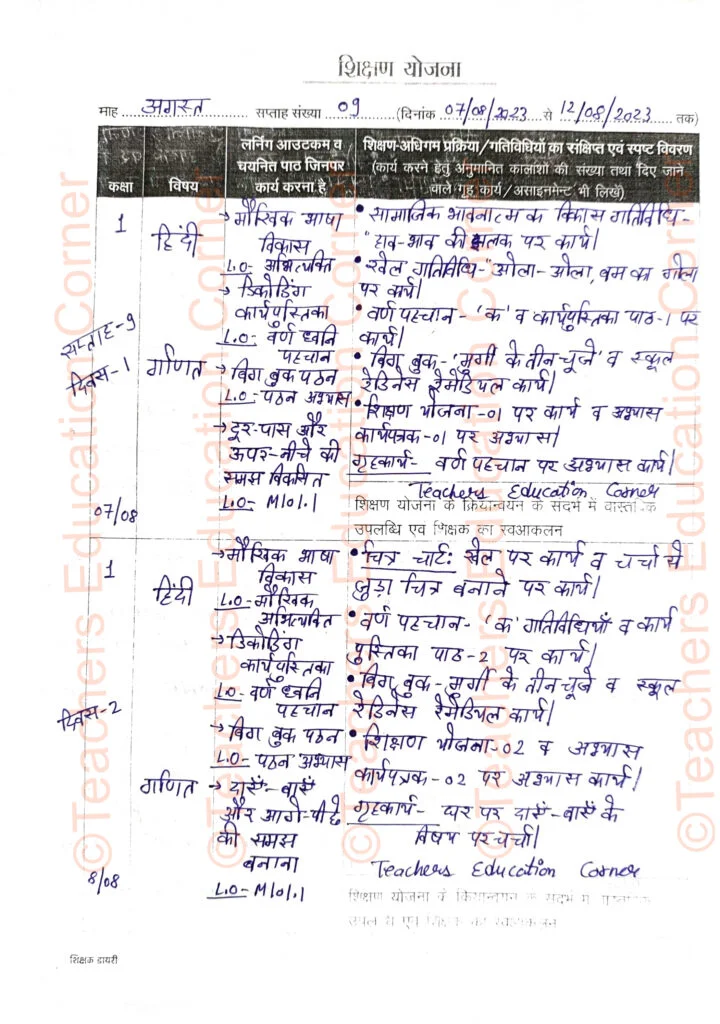 शिक्षण योजना
माह अगस्त सप्ताह संख्या 09 (दिनांक 07/08/2023 से 12/08/2023 तक)
कक्षा
विषय
लर्निंग आउटकम व
चयनित पाठ जिनपर
कार्य करना है
शिक्षण-अधिगम प्रक्रिया/गतिविधियों का संक्षिप्त एवं स्पष्ट विवरण
(कार्य करने हेतु अनुमानित कालांशों की संख्या तथा दिए जाने
वाले गृह कार्य/असाइनमेन्ट भी लिखें)
1
सप्ताह-9
दिवस-1
07/08
हिंदी
गणित
→ मौखिक भाषा
विकास
L.O- अभिव्यक्ति
→ डिकोडिंग
कार्यपुस्तिका
L.O- वर्ण ध्वनि
पहचान
→ बिग बुक पठन
L.O- पठन अभ्यास
→ दूर-पास और
ऊपर-नीचे की
समझ विकसित
L.O- M101.1
• सामाजिक भावनात्मक विकास गतिविधि-
"हाव-भाव की झलक पर कार्य।
• खेल गतिविधि- "ओला-ओला, बम का गोला
पर कार्य।
• वर्ण पहचान- 'क' व कार्यपुस्तिका पाठ-1 पर
कार्य।
• बिग बुक- 'मुर्गी के तीन चूजे' व स्कूल
रेडिनेस रेमेडियल कार्य।
• शिक्षण योजना-01 पर कार्य व अभ्यास
कार्यपत्रक-01 पर अभ्यास।
गृहकार्य- वर्ण पहचान पर अभ्यास कार्य।
Teachers Education Corner
शिक्षण योजना के क्रियान्वयन के संदर्भ में वास्तविक
उपलब्धि एवं शिक्षक का स्वआकलन
1
दिवस-2
8/08
हिंदी
गणित
→ मौखिक भाषा
विकास
L.O- मौखिक
अभिव्यक्ति
→ डिकोडिंग
कार्यपुस्तिका
L.O- वर्ण ध्वनि
पहचान
→ बिग बुक पठन
L.O- पठन अभ्यास
→ दाएँ-बाएँ
और आगे-पीछे
की समझ
बनाना
L.O- M101.1
• चित्र चार्ट: खेल पर कार्य व चर्चा से
जुड़ा चित्र बनाने पर कार्य।
• वर्ण पहचान- 'क' गतिविधियाँ व कार्य
पुस्तिका पाठ-2 पर कार्य।
• बिग बुक- मुर्गी के तीन चूजे व स्कूल
रेडिनेस रेमेडियल कार्य।
• शिक्षण योजना-02 व अभ्यास
कार्यपत्रक-02 पर अभ्यास कार्य।
गृहकार्य- घर पर दाएँ-बाएँ के
विषय पर चर्चा।
Teachers Education Corner
शिक्षण योजना के क्रियान्वयन के संदर्भ में
शिक्षक डायरी
©Teachers Education Corner
©Teachers Education Corner
©Teachers Education Corner
©Teachers Education Corner